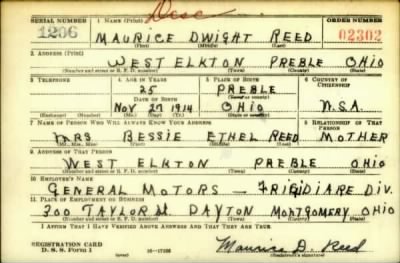 Desc
SERIAL NUMBER 1. NAME (Print) ORDER NUMBER
1206 MAURICE DWIGHT REED 02302
(First) (Middle) (Last)
2. ADDRESS (Print)
WEST ELKTON PREBLE OHIO
(Number and street or R. F. D. number) (Town) (County) (State)
3. TELEPHONE 4. AGE IN YEARS 5. PLACE OF BIRTH 6. COUNTRY OF CITIZENSHIP
25 PREBLE
DATE OF BIRTH (Town or county)
Nov 27 1914 OHIO U.S.A.
(Exchange) (Number) (Mo.) (Day) (Yr.) (State or country)
7. NAME OF PERSON WHO WILL ALWAYS KNOW YOUR ADDRESS 8. RELATIONSHIP OF THAT PERSON
MRS BESSIE ETHEL REED MOTHER
(Mr., Mrs., Miss) (First) (Middle) (Last)
9. ADDRESS OF THAT PERSON
WEST ELKTON PREBLE OHIO
(Number and street or R. F. D. number) (Town) (County) (State)
10. EMPLOYER'S NAME
GENERAL MOTORS — FRIGIDIARE DIV.
11. PLACE OF EMPLOYMENT OR BUSINESS
300 TAYLOR St. DAYTON MONTGOMERY OHIO
(Number and street or R. F. D. number) (Town) (County) (State)
I AFFIRM THAT I HAVE VERIFIED ABOVE ANSWERS AND THAT THEY ARE TRUE.
REGISTRATION CARD
D. S. S. Form 1 Maurice D. Reed
(Registrant's signature)